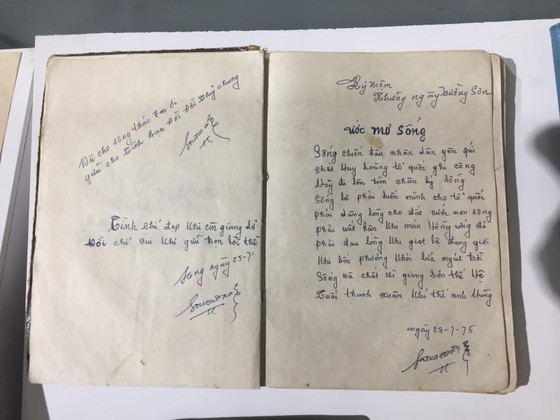 Dù cho sông thác Em ơi
giữ cho tình bạn đời đời thủy chung
Tình chỉ đẹp khi còn giang dở
Đời chỉ vui khi giữ trọn lời thề
ngày 25-7
Kỷ niệm
Những ngày trường Sơn
ước mơ sống
Sống chiến đấu nhân dân yêu quí
chết huy hoàng tổ quốc ghi công
Hãy đi lên tìm chân lý sống
Sống là phải hiến mình cho tổ quốc
phải dâng lòng cho đất nước non sông
phải uất hận khi máu hồng ứng đỏ
phải đau lòng khi giặc
Khi bốn phương khói lửa ngút trời
Sống và chết vì giang sơn thế hệ
Tuổi thanh xuân khí thế anh hùng
ngày 28-7-75